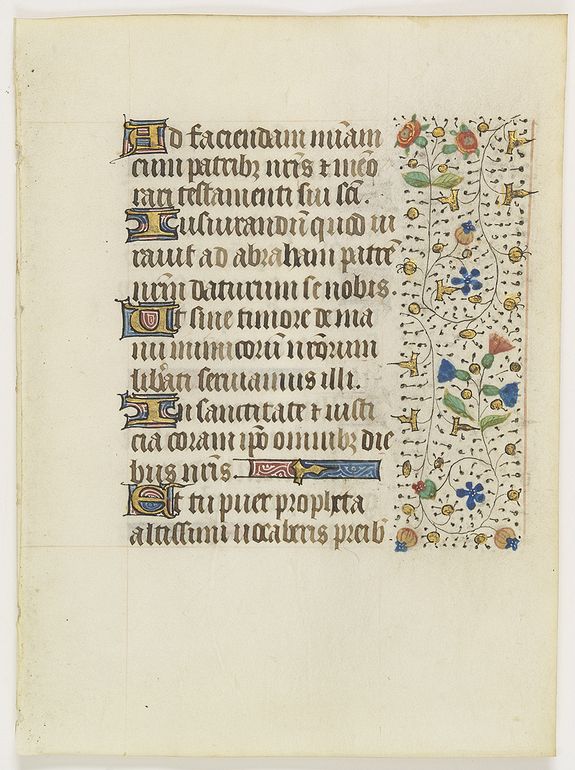 Ad faciendam mīam
cum patribꝫ nr̄is ⁊ memo
rari testamenti sui sc̄i.
Iusiurandū quod iu
rauit ad abraham patrē
nr̄m daturum se nobis
Ut sine timore de ma
nu inimicorū nr̄orum
libͣati seruiamus illi.
In sanctitate ⁊ iusti
cia coram ip̄o omnibꝫ die
bus nr̄is
Et tu puer propheta
altissimi uocaberis preib